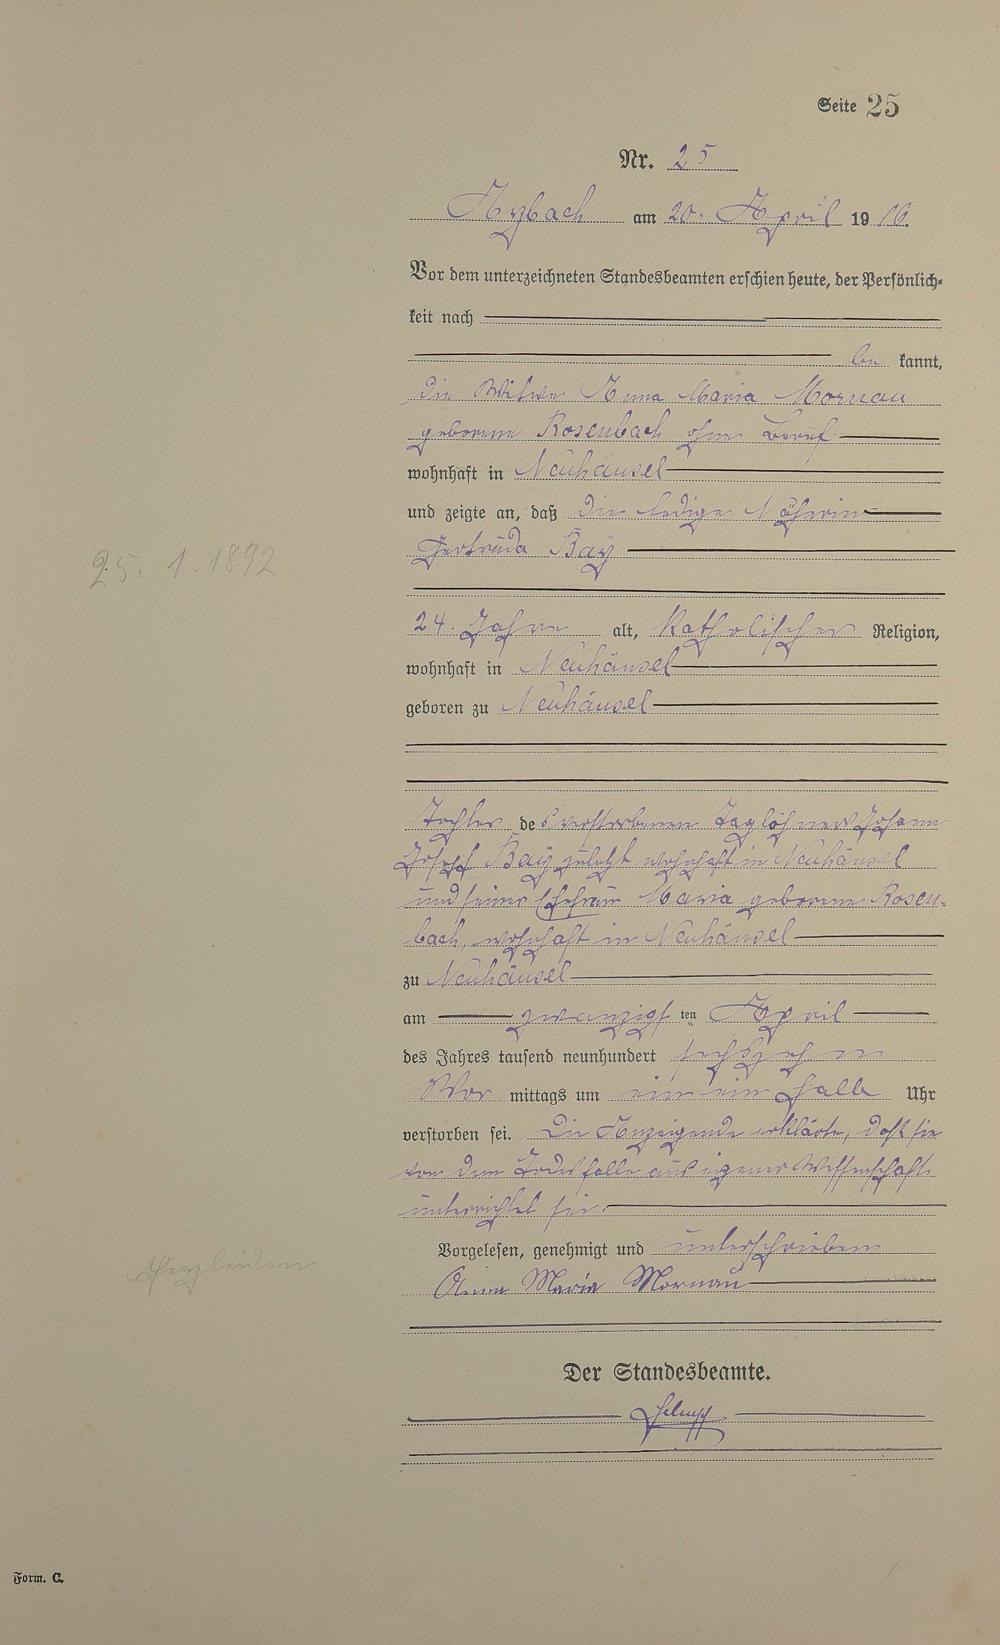 Seite 25
Nr. 25
Arzbach am 20. April 19 16.
Vor dem unterzeichneten Standesbeamten erschien heute, der Persönlich-
keit nach
be kannt,
die Witwe Anna Maria Mornau
geborene Rosenbach ohne Beruf
wohnhaft in Neuhäusel
und zeigte an, daß die ledige Näherin
Gertruda Bay
25. 1. 1892
24. Jahre alt, katholischer Religion,
wohnhaft in Neuhäusel
geboren zu Neuhäusel
Tochter des verstorbenen Taglöhners Johann
Josef Bay zuletzt wohnhaft in Neuhäusel
und seiner Ehefrau Maria geborene Rosen-
bach, wohnhaft in Neuhäusel
zu Neuhäusel
am zwanzigsten April
des Jahres tausend neunhundert sechszehn
Vor mittags um ein ein halb Uhr
verstorben sei. Die Anzeigende erklärte, daß sie
von dem Todesfalle aus eigener Wissenschaft
unterrichtet sei.
Vorgelesen, genehmigt und unterschrieben
Herzleiden
Anna Maria Mornau
Der Standesbeamte.
Form. C.